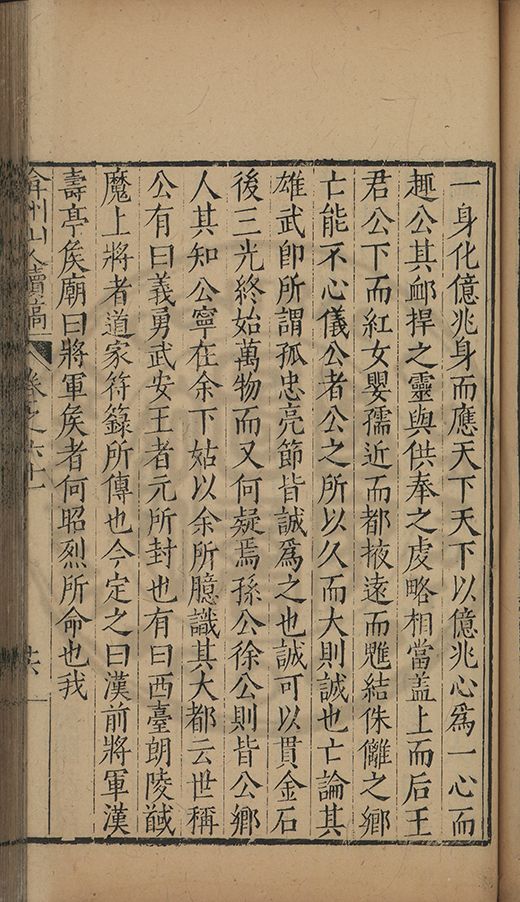 一身化億兆身而應天下天下以億兆心爲一心而
趣公其䘏捍之靈與供奉之虔略相當盖上而后王
君公下而紅女嬰孺近而都掖遠而魋結侏儺之鄉
亡能不心儀公者公之所以久而大則誠也亡論其
雄武卽所謂孤忠亮節皆誠爲之也誠可以貫金石
後三光終始萬物而又何疑焉孫公徐公則皆公鄉
人其知公寧在余下姑以余所臆識其大都云世稱
公有曰義勇武安王者元所封也有曰西臺朗陵馘
魔上將者道家符籙所傳也今定之曰漢前將軍漢
壽亭矦廟曰將軍矦者何昭烈所命也我
弇州山人續稿 卷之六十一 六